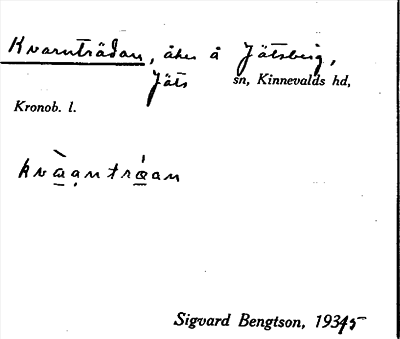 Kvarnträdan, åker å Jätsberg,
Jäts sn, Kinnevalds hd,
Kronob. l.
kvàạntrǽan
Sigvard Bengtson, 1935